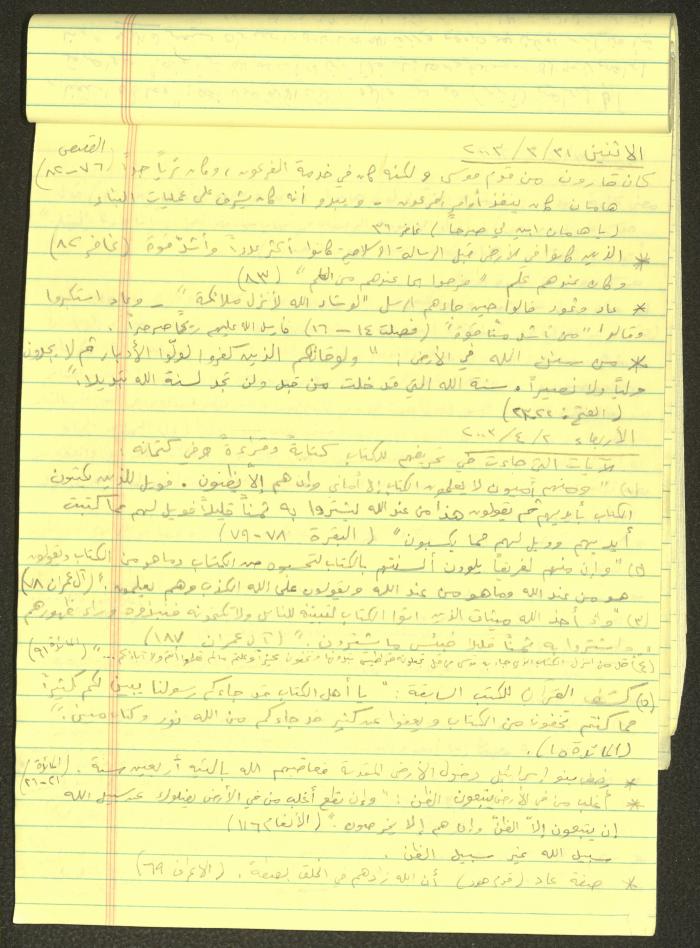 الاثنين ٣١/ ٣/ ٢٠٠٣
القصص
كان قارون من قوم موسى ولكنه كان في خدمة الفرعون، وكان ثرياً جداً (٧٦-٨٢)
هامان كان ينفذ أوامر الفرعون - ويبدو أنه كان يشرف على عمليات البناء
(يا هامان ابن لي صرحاً) غافر ٣٦
* الذين كانوا في الأرض قبل الرسالة الإسلامية كانوا أكثر عدداً وأشد قوة (غافر ٨٢)
وكان عندهم علم "فرحوا بما عندهم من العلم" (٨٣)
* عاد وثمود قالوا حين جاءهم الرسل "لو شاء الله لأنزل ملائكة" - وعاد استكبروا
وقالوا "من أشد منا قوة" (فصلت ١٤-١٦) فأرسل الله عليهم ريحاً صرصراً.
* من سنن الله في الأرض: "ولو قاتلهم الذين كفروا لولّوا الأدبار ثم لا يجدون
ولياً ولا نصيراً. سنة الله التي قد خلت من قبل ولن تجد لسنة الله تبديلا."
(الفتح: ٢٢-٢٣)
الأربعاء ٢/ ٤/ ٢٠٠٣
الآيات التي جاءت في تحريفهم للكتاب كتابةً وقراءةً كتمانه:
(١) "ومنهم أميون لا يعلمون الكتاب إلا أماني وإن هم إلا يظنون. فويل للذين يكتبون
الكتاب بأيديهم ثم يقولون هذا من عند الله ليشتروا به ثمناً قليلاً فويل لهم مما كتبت
أيديهم وويل لهم مما يكسبون" (البقرة ٧٨-٧٩)
(٢) "وإن منهم لفريقاً يلوون ألسنتهم بالكتاب لتحسبوه من الكتاب وما هو من الكتاب ويقولون
هو من عند الله وما هو من عند الله ويقولون على الله الكذب وهم يعلمون." (آل عمران ٧٨)
(٣) "وإذ أخذ الله ميثاق الذين أوتوا الكتاب لتبيننه للناس ولا تكتمونه فنبذوه وراء ظهورهم
واشتروا به ثمناً قليلا فبئس ما يشترون." (آل عمران ١٨٧)
(٤) قل من أنزل الكتاب الذي جاء به موسى تجعلونه قراطيس تبدونها وتخفون كثيراً وعلمتم ما لم تعلموا أنتم ولا آباؤكم ..." (٩١)
(٥) كشف القرآن للكتب السابقة: "يا أهل الكتاب قد جاءكم رسولنا يبين لكم كثيراً
مما كنتم تخفون من الكتاب ويعفوا عن كثير قد جاءكم من الله نور وكتاب مبين."
(المائدة ١٥).
* رفض بنو إسرائيل دخول الأرض المقدسة فعاقبهم الله بالتيه أربعين سنة. (المائدة/ ٢١-٢٦)
* أغلب من في الأرض يتبعون الظن: "وإن تطع أغلب من في الأرض يضلوك عن سبيل الله
إن يتبعون إلا الظن وإن هم إلا يخرصون." (الأنعام ١١٦)
سبيل الله غير سبيل الظن.
* صفة عاد (قوم هود) أن الله زادهم في الخلق بصطة. (الأعراف ٦٩)